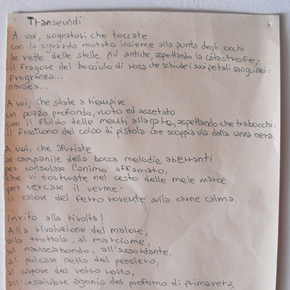 Transeundi
A voi, sognatori, che toccate
con lo sguardo mutato insieme alla punta degli occhi
le vette delle stelle più antiche, aspettando la catastrofe;
il fragore del bocciolo di rosa che schiude i suoi petali sanguinei:
Fragranza...
nausea...
A voi, che state a riempire
un pozzo profondo, vuoto ed assetato
con il fluido delle menti allaccate, aspettando che trabocchi:
il frastuono del colpo di pistola che scoppia via dalla canna nera.
A voi, che sfuriate
al campanile della bocca melodie aberranti
per consolare l'animo affamato,
che vi torturate nel cesto delle mele marce
per cercare il verme:
il calore del ferro rovente sulla carne calma.
Invito alla rivolta!
Alla rivoluzione del malore,
alla trottola, al marciume,
al nauseabondo, all'assordante,
al pulsare netto del pensiero,
al sapore del vetro rotto,
all'insalubre agonia del profumo di primavera,